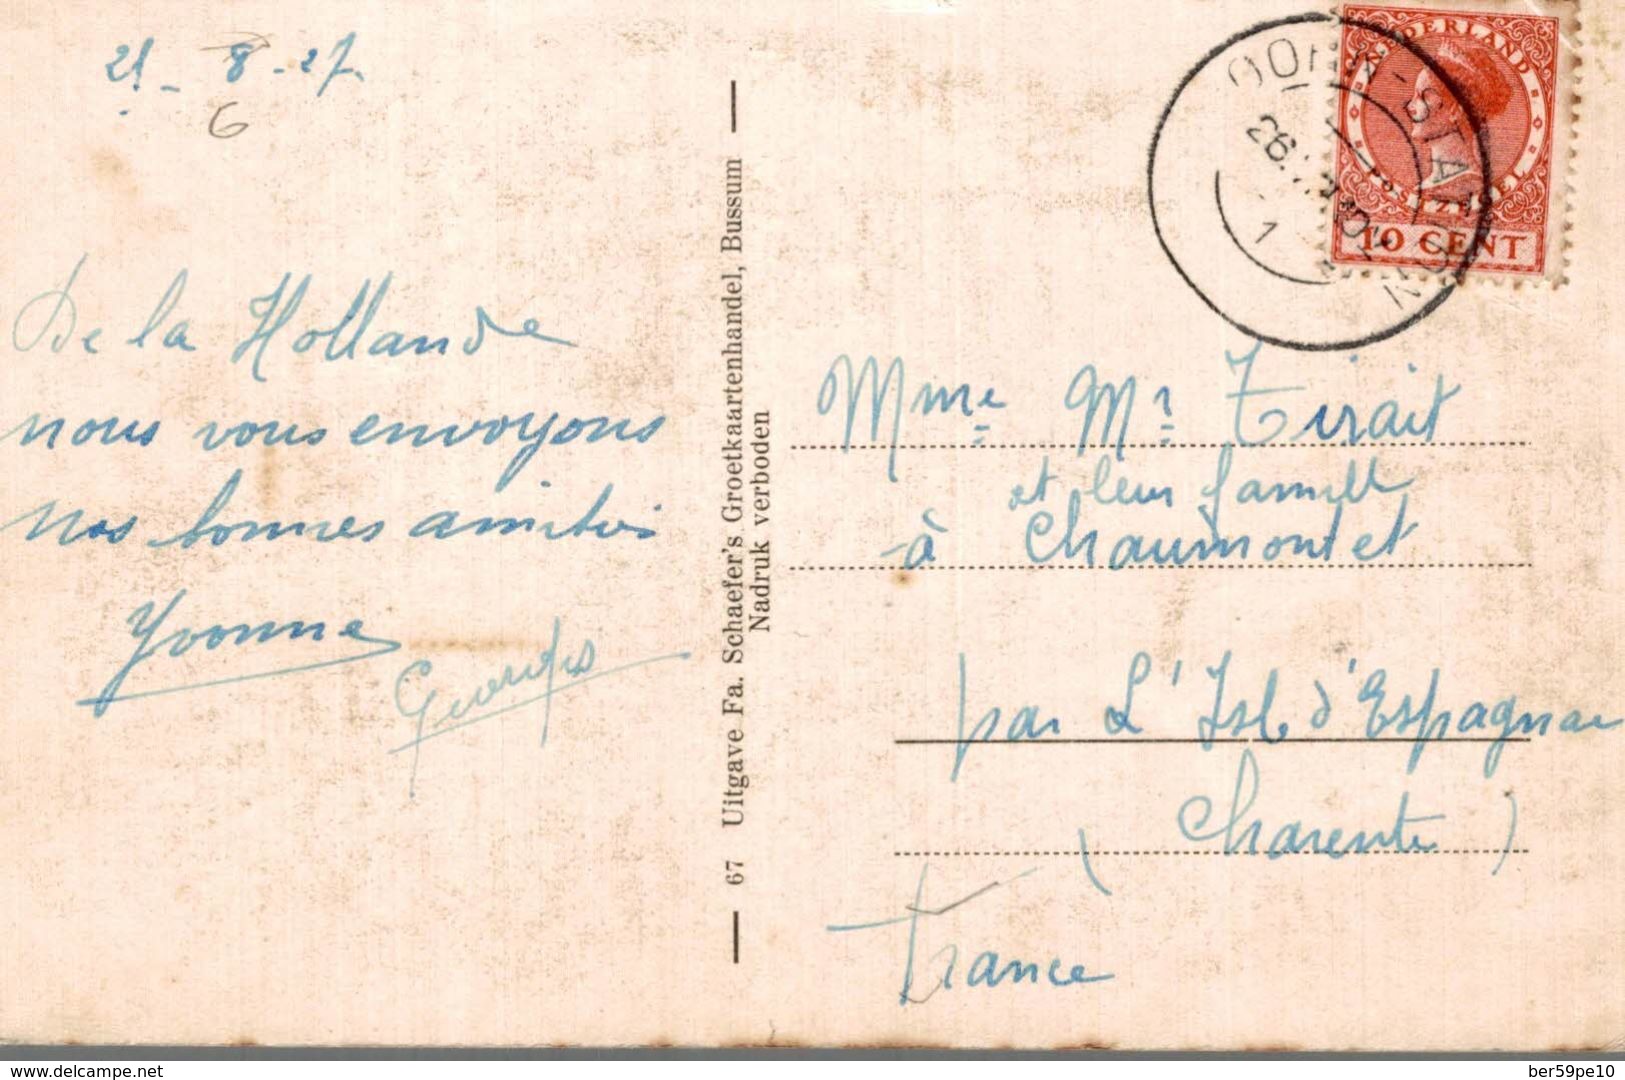 21 - 8 - 27.
6
De la Hollande
nous vous envoyons
nos bonnes amitiés
Yvonne
Georges
67 Uitgave Fa. Schaefer's Groetkaartenhandel, Bussum
Nadruk verboden
NEDERLAND
POSTZEGEL
10 CENT
DOORN-STATION
26.
1
Mme Mr Tirait
et leur famille
à Chaumontet
par L'Isle d'Espagnac
(Charente)
France
delcampe.net
ber59pe10